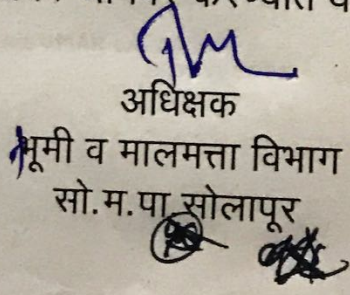 अधिक्षक
भूमी व मालमत्ता विभाग
सो.म.पा सोलापूर